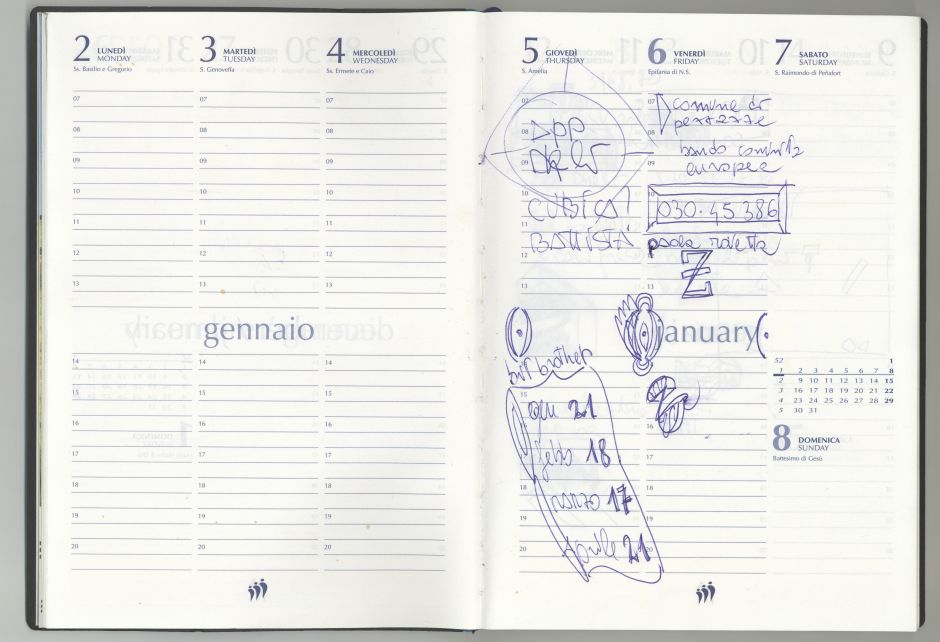 2 LUNEDÌ
MONDAY
Ss. Basilio e Gregorio
07
08
09
10
11
12
13
3 MARTEDÌ
TUESDAY
S. Genoveffa
07
08
09
10
11
12
13
4 MERCOLEDÌ
WEDNESDAY
Ss. Ermete e Caio
07
08
09
10
11
12
13
gennaio
14
15
16
17
18
19
20
14
15
16
17
18
19
20
14
15
16
17
18
19
20
5 GIOVEDÌ
THURSDAY
S. Amelia
07
08
09
10
11
12
13
CUBICAT
BATTISTA
6 VENERDÌ
FRIDAY
Epifania di N.S.
07
08
09
10
11
12
13
comune di
pezzaze
bando comunità
europea
030.45 386
paola
Z
7 SABATO
SATURDAY
S. Raimondo di Peñafort
january
big brother
15
18
19
20
gen 21
febb 18
marzo 17
aprile 21
16
17
18
19
20
52 1
1 2 3 4 5 6 7 8
2 9 10 11 12 13 14 15
3 16 17 18 19 20 21 22
4 23 24 25 26 27 28 29
5 30 31
8 DOMENICA
SUNDAY
Battesimo di Gesù